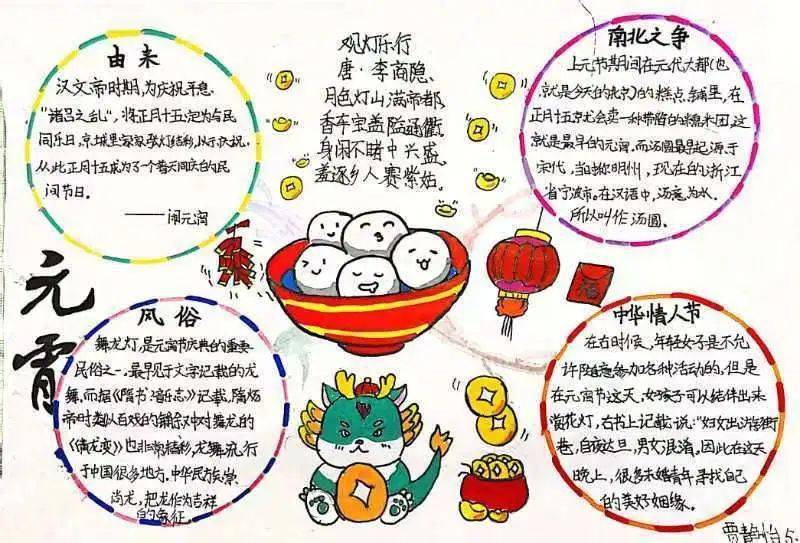 由来
汉文帝时期,为庆祝平息
"诸吕之乱",将正月十五定为与民
同乐日,京城里家家张灯结彩,以示庆祝。
从此正月十五成为了一个普天同庆的民
间节日。
——闹元宵
观灯乐行
唐·李商隐
月色灯山满帝都,
香车宝盖隘通衢。
身闲不睹中兴盛,
羞逐乡人赛紫姑。
南北之争
上元节期间在元代大都(也
就是今天的北京)的糕点铺里,在
正月十五就会卖一种带馅的糯米团,这
就是最早的元宵。而汤圆最早起源于
宋代,当时明州,现在的浙江
省宁波市。在汉语中,汤意为水。
所以叫作汤圆。
元宵
福
风俗
舞龙灯,是元宵节庆典的重要
民俗之一,最早见于文字记载的龙
舞,而据《隋书·音乐志》记载,隋炀
帝时类似百戏的铺叙中对舞龙的
《黄龙变》也非常精彩,龙舞流行
于中国很多地方。中华民族崇
尚龙,把龙作为吉祥
的象征。
中华情人节
在古时候,年轻女子是不允
许随意参加各种活动的,但是
在元宵节这天,女孩子可以结伴出来
赏花灯,古书上记载说:"妇女出游街
巷,自夜达旦,男女混淆。因此在这天
晚上,很多未婚青年寻找自己
的美好姻缘。
贾静怡 5.